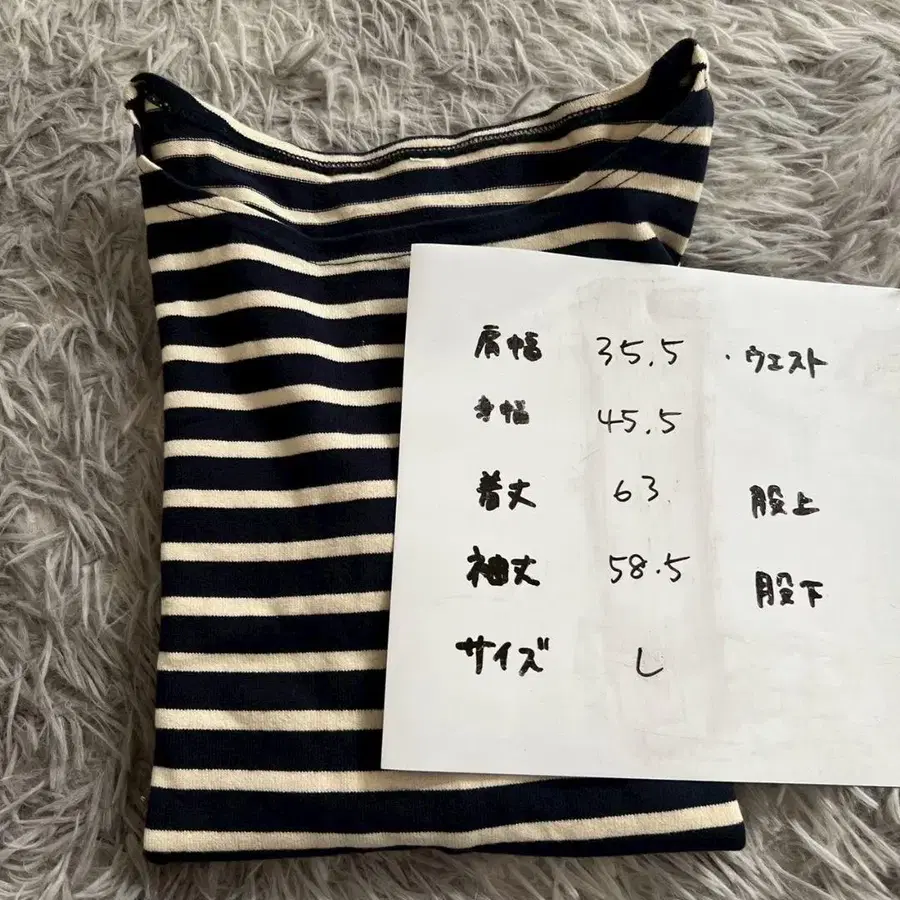 肩幅 35.5 ・ウエスト
身幅 45.5
着丈 63. 股上
袖丈 58.5 股下
サイズ L